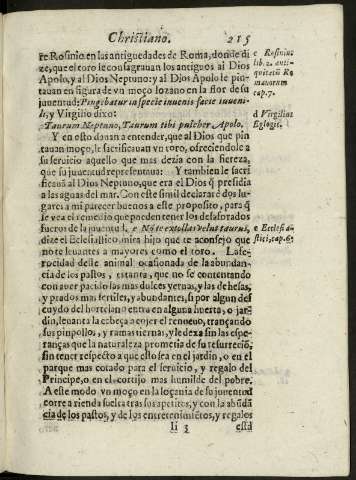 Christiano. 215
re Rosinio en las antiguedades de Roma, donde di
ze, que el toro le consagrauan los antiguos al Dios
Apolo, y al Dios Neptuno: y al Dios Apolo le pin-
tauan en figura de vn moço lozano en la flor de su
juuentud: Pingebatur in specie iuuenis facie iuueni-
li, y Virgilio dixo:
Taurum Neptuno, Taurum tibi pulcher Apolo.
Y en esto dauan a entender, que al Dios que pin
tauan moço, le sacrificauan vn toro, ofreciendole a
su seruicio aquello que mas dezia con la fiereza,
que su juuentud representaua: Y tambien le sacri
ficauã al Dios Neptuno, que era el Dios q̃ presidia
a las aguas del mar. Con este simil declararè dos lu-
gares a mi parecer buenos a este proposito, para q̃
se vea el remedio que pueden tener los desaforados
fueros de la juuentud, e Nõ te extollas velut taurus,
dize el Eclesiastico: mira hijo que te aconsejo que
no te leuantes a mayores como el toro. La fe-
rocidad deste animal ocasionada de la abundan-
cia de los pastos, es tanta, que no se contentando
con auer pacido las mas dulces yeruas, y las dehesas,
y prados mas fertiles, y abundantes, si por algun des
cuydo del hortelano entra en alguna huerta, o jar-
din, leuanta la cabeça a cojer el renueuo, tronçando
sus pinpollos, y ramas tiernas, y le dexa sin las espe-
ranças que la naturaleza prometia de su resurreciõ,
sin tener respecto a que esto sea en el jardin, o en el
parque mas cotado para el seruicio, y regalo del
Principe, o en el cortijo mas humilde del pobre.
A este modo vn moço en la loçania de su juuentud
corre a rienda suelta tras sus apetitos, y con la abũdã
cia de los pastos, y de los entretenimiẽtos, y regalos
Ii 3 està
c Rosinius
lib. 2. anti-
quitatũ Ro
manorum
cap. 7.
d Virgilius
Eglogis.
e Ecclesia
stici, cap. 6.